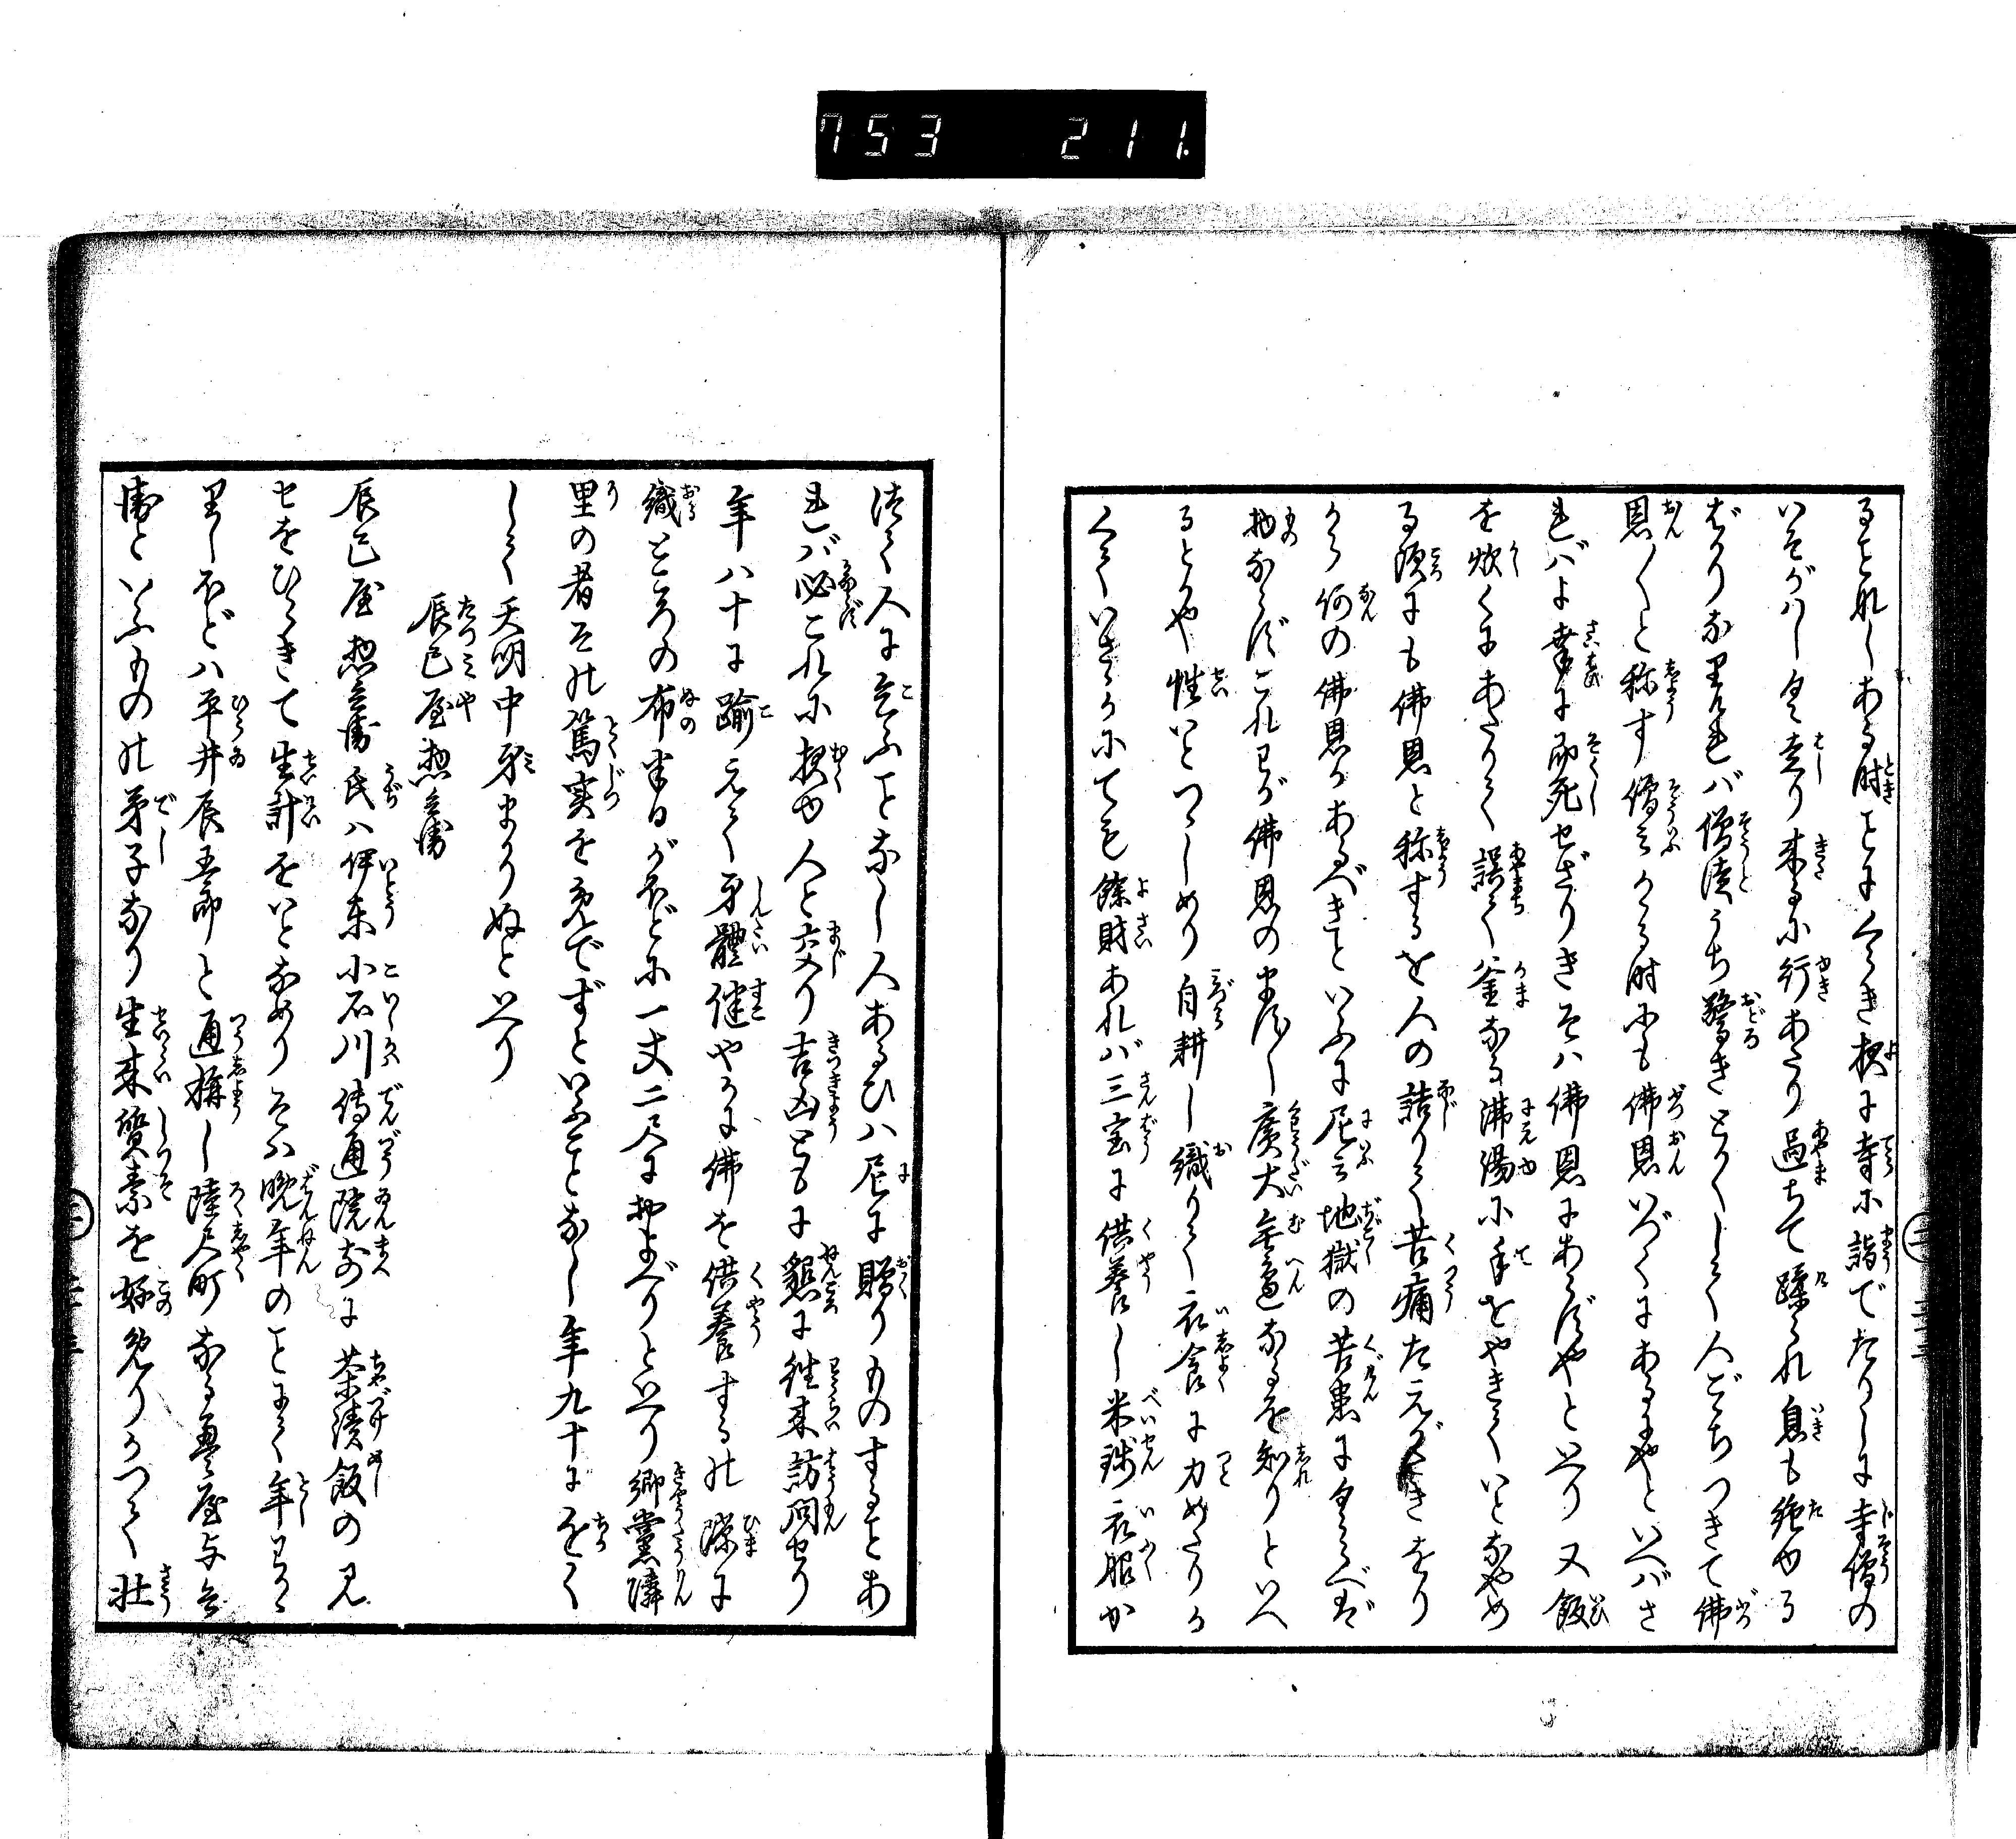 753 211
ることなしある時ことにくらき夜に寺に詣でたりしに寺僧の
いそがハしく走り来るに行あたり過ちて蹂られ息も絶ゆる
ばかりなりければ僧徒うち驚きとかくして人ごちつきて佛
恩〱と称す僧云かゝる時にも佛恩いづくにあるにやといへバさ
れバよ幸に即死せざりきそハ佛恩にあらずやといへり又飯
を炊くにあたりて誤て釜なる沸湯に手をやきていとなやめ
る頃にも佛恩と称するを人の詰りて苦痛たえがたきをり
から何の佛恩かあるべきといふに尼云地獄の苦患にくらべば
物ならずこれわが佛恩のまします廣大無邊なるを知りといへ
るとかや性いとつゝしめり自耕し織りて衣食に力めたりか
くていさゝかにても餘財あれバ三宝に供養し米銭衣服か
つて人に乞ふことなし人あるひハ尼に贈りものすることあ
れバ必これに報ゆ人と交り吉凶ともに懇に往来訪問せり
年八十に踰えて身體健やかに佛を供養するの隙に
織ところの布半日がほどに一丈二尺におよべりといへり郷黨隣
里の者その篤実を免でずといふことなし年九十にちかく
して天明中身まかりぬといへり
辰巳屋惣兵衛
辰巳屋惣兵衛氏ハ伊東小石川傳通院前に茶漬飯の見
セをひらきて生計をいとなめりそハ晩年のことにて年わかゝ
りしほどハ平井辰五郎と通稱し陸尺町なる万屋与兵
衛といふものの弟子なり生来質素を好めりかつて壮